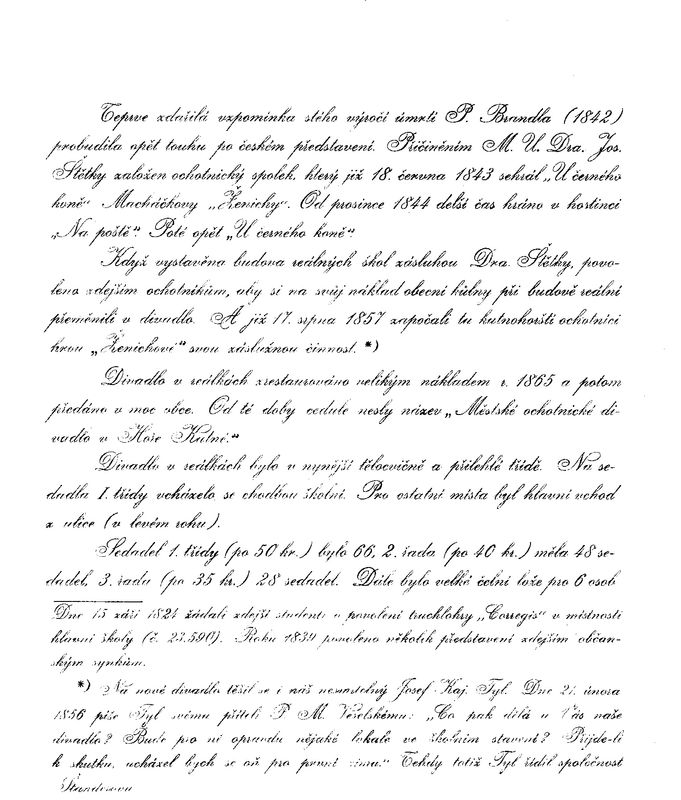 Teprve zdařilá vzpomínka stého výročí úmrtí P. Brandla (1842)
probudila opět touhu po českém představení. Přičiněním M. U. Dra. Jos.
Štětky založen ochotnický spolek, který již 18. června 1843 sehrál „U černého
koně" Macháčkovy „Ženichy". Od prosince 1844 delší čas hráno v hostinci
„Na poště". Poté opět „U černého koně".
Když vystavěna budova reálných škol zásluhou Dra. Štětky, povo-
leno zdejším ochotníkům, aby si na svůj náklad obecní kůlny při budově reální
přeměnili v divadlo. A již 17. srpna 1857 započali tu kutnohorští ochotníci
hrou „Ženichové" svou záslužnou činnost. *)
Divadlo v reálkách zrestaurováno velikým nákladem r. 1865 a potom
předáno v moc obce. Od té doby cedule nesly název „Městské ochotnické di-
vadlo v Hoře Kutné."
Divadlo v reálkách bylo v nynější tělocvičně a přilehlé třídě. Na se-
dadla I. třídy vcházelo se chodbou školní. Pro ostatní místa byl hlavní vchod
z ulice (v levém rohu).
Sedadel 1. třídy (po 50 kr.) bylo 66, 2. řada (po 40 kr.) měla 48 se-
dadel, 3. řada (po 35 kr.) 28 sedadel. Dále bylo velké čelní lože pro 6 osob
Dne 15 září 1824 žádali zdejší studenti o povolení truchlohry „Corregis" v místnosti
hlavní školy (č. 23.590). Roku 1839 povoleno několik představení zdejším občan-
ským synkům.
*) Na nové divadlo těšil se i náš nesmrtelný Josef Kaj. Tyl. Dne 21. února
1856 píše Tyl svému příteli P. M. Veselskému: „Co pak dělá u Vás naše
divadlo? Bude pro ni opravdu nějaké lokale ve školním stavení? Přijde-li
k skutku, ucházel bych se oň pro první zimu." Tehdy totiž Tyl řídil společnost
Štandrovu